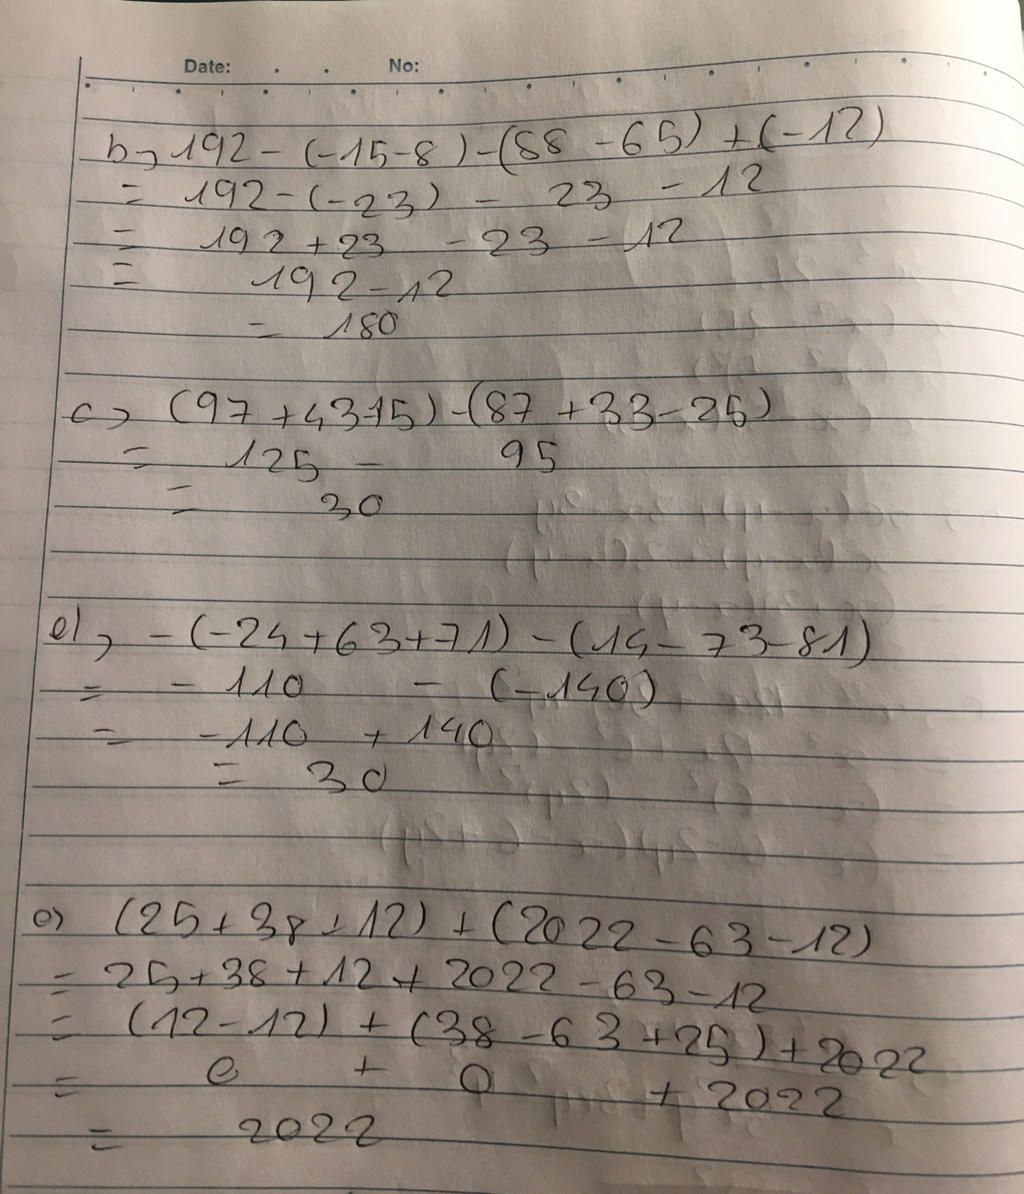 Date: . . No:
b, 192 - (-15-8) - (88 - 65) + (-12)
= 192 - (-23) - 23 - 12
= 192 + 23 - 23 - 12
= 192 - 12
= 180
c, (97 + 43-15) - (87 + 33 - 25)
= 125 - 95
= 30
d, - (-24 + 63 + 71) - (14 - 73 - 81)
= - 110 - (-140)
= -110 + 140
= 30
e, (25 + 38 + 12) + (2022 - 63 - 12)
= 25 + 38 + 12 + 2022 - 63 - 12
= (12 - 12) + (38 - 63 + 25) + 2022
= 0 + 0 + 2022
= 2022